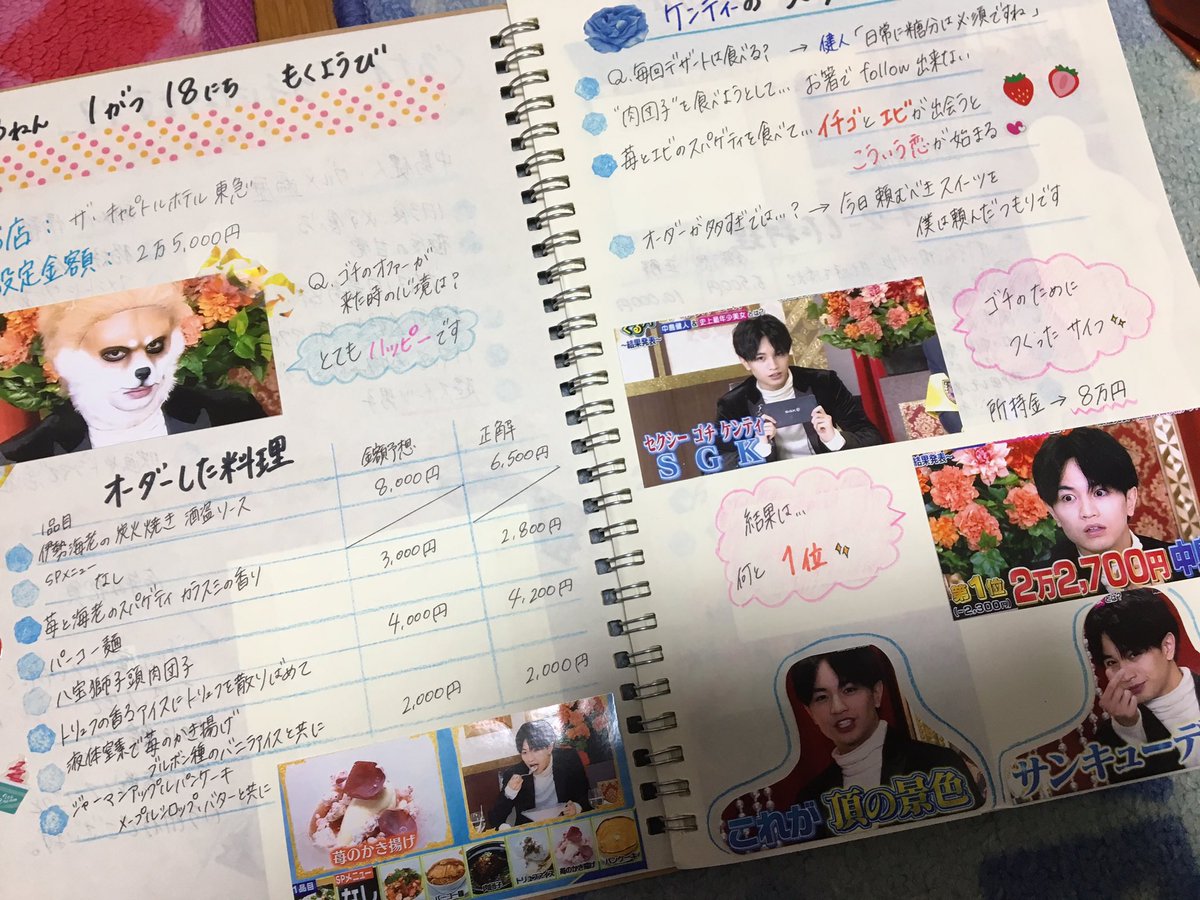 うねん 1がつ 18にち もくようび
お店: ザ・キャピトルホテル 東急
設定金額: 2万5,000円
Q. ゴチのオファーが
来た時の心境は?
とてもハッピーです
オーダーした料理
金額予想
正解
1品目
伊勢海老の炭火焼き 酒盗ソース
8,000円
6,500円
SPメニュー
なし
苺と海老のスパゲティ カラスミの香り
3,000円
2,800円
パーコー麺
八宝獅子頭肉団子
4,000円
4,200円
トリュフの香るアイスにトリュフを散りばめて
液体窒素で苺のかき揚げ
ブルボン種のバニラアイスと共に
2,000円
2,000円
ジャーマンアップルパンケーキ
メープルシロップ、バターと共に
苺のかき揚げ
1品目
SPメニュー
なし
パーコー麺
肉団子
トリュフアイス
苺のかき揚げ
パンケーキ
ケンティーの
Q. 毎回デザートは食べる? → 健人「日常に糖分は必須ですね」
"肉団子"を食べようとして… お箸でfollow出来ない
苺とエビのスパゲティを食べて… イチゴとエビが出会うと
こういう恋が始まる
オーダーが多すぎでは…? → 今日頼むべきスイーツを
僕は頼んだつもりです
中島健人&史上最年少美女
~結果発表~
セクシー ゴチ ケンティー
SGK
ゴチのために
つくったサイフ
所持金 → 8万円
結果は…
何と 1位
結果発表~
第1位
(-2,300円)
2万2,700円 中
これが 頂の景色
サンキューデ